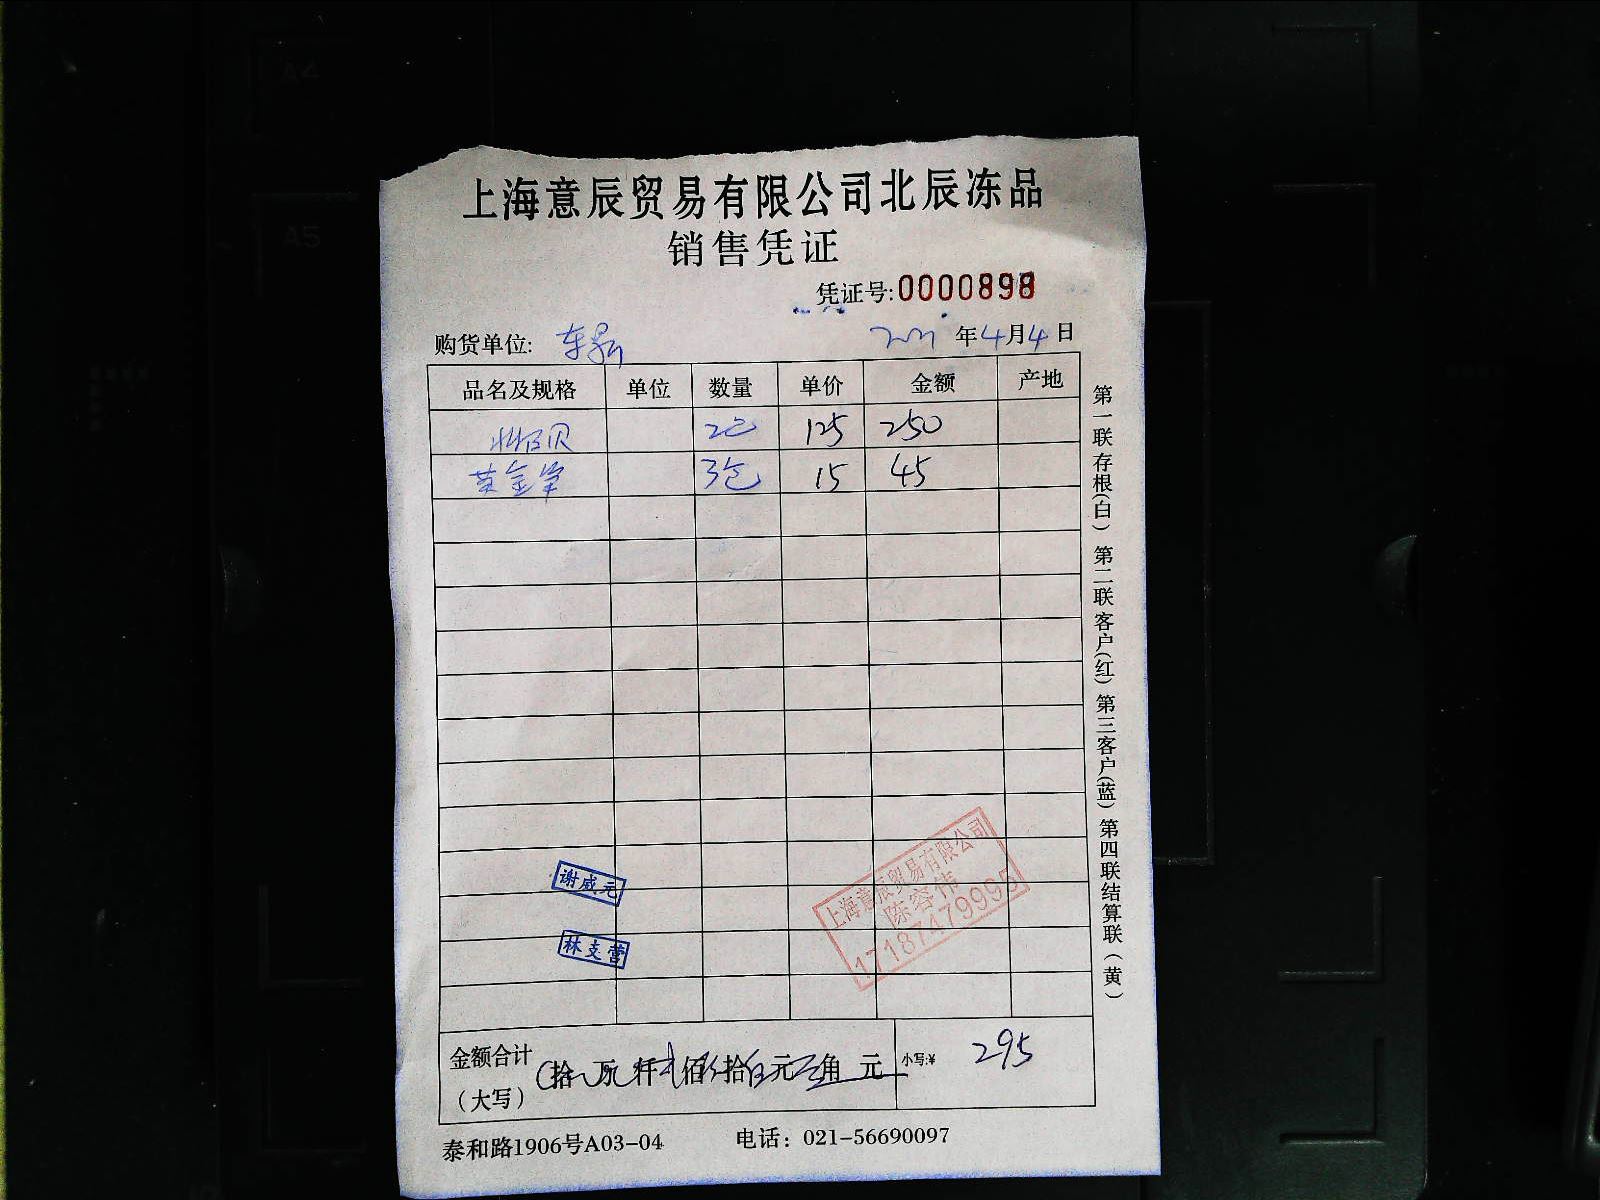 A4
A5
上海意辰贸易有限公司北辰冻品
销售凭证
凭证号:0000898
购货单位: 2021年4月4日
品名及规格 单位 数量 单价 金额 产地
贝 2包 125 250
黄金 3包 15 45
谢威元
林支营
上海意辰贸易有限公司
陈容伟
17187479995
金额合计
(大写) 拾 万 仟 佰 拾 元 角 元 小写:¥ 295
泰和路1906号A03-04 电话：021-56690097
第一联存根(白) 第二联客户(红) 第三客户(蓝) 第四联结算联(黄)